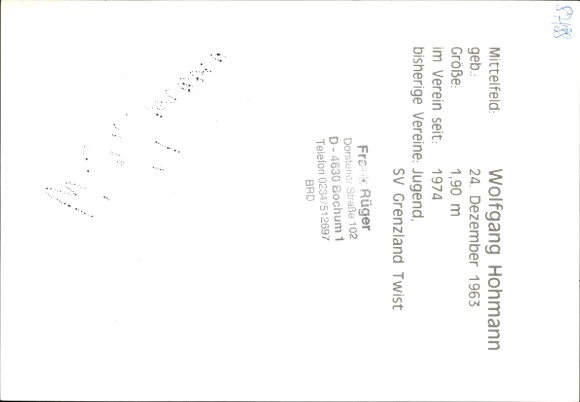 87/88
Mittelfeld: Wolfgang Hohmann
geb.: 24. Dezember 1963
Größe: 1,90 m
im Verein seit: 1974
bisherige Vereine: Jugend,
SV Grenzland Twist
Frank Rüger
Dorstener Straße 102
D - 4630 Bochum 1
Telefon 0234/512697
BRD